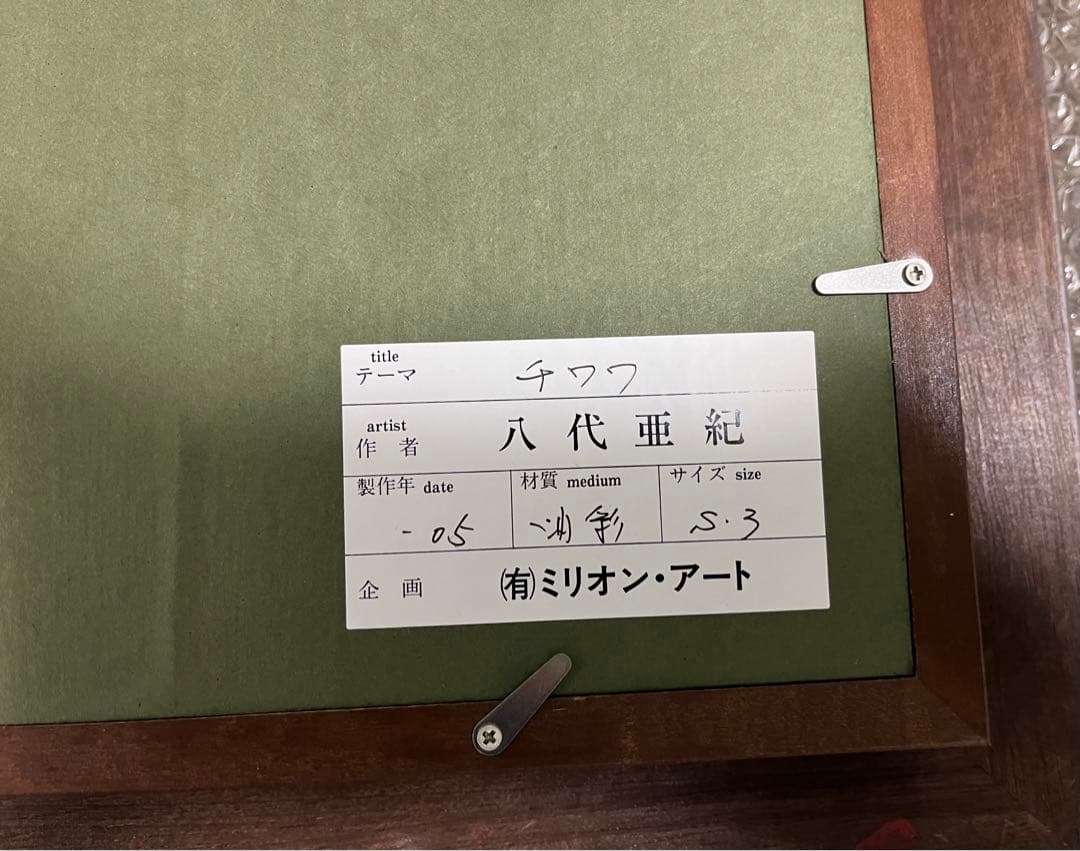 title
テーマ チワワ
artist
作者 八代亜紀
製作年 date 材質 medium サイズ size
-05 油彩 S.3
企画 ㈲ミリオン・アート